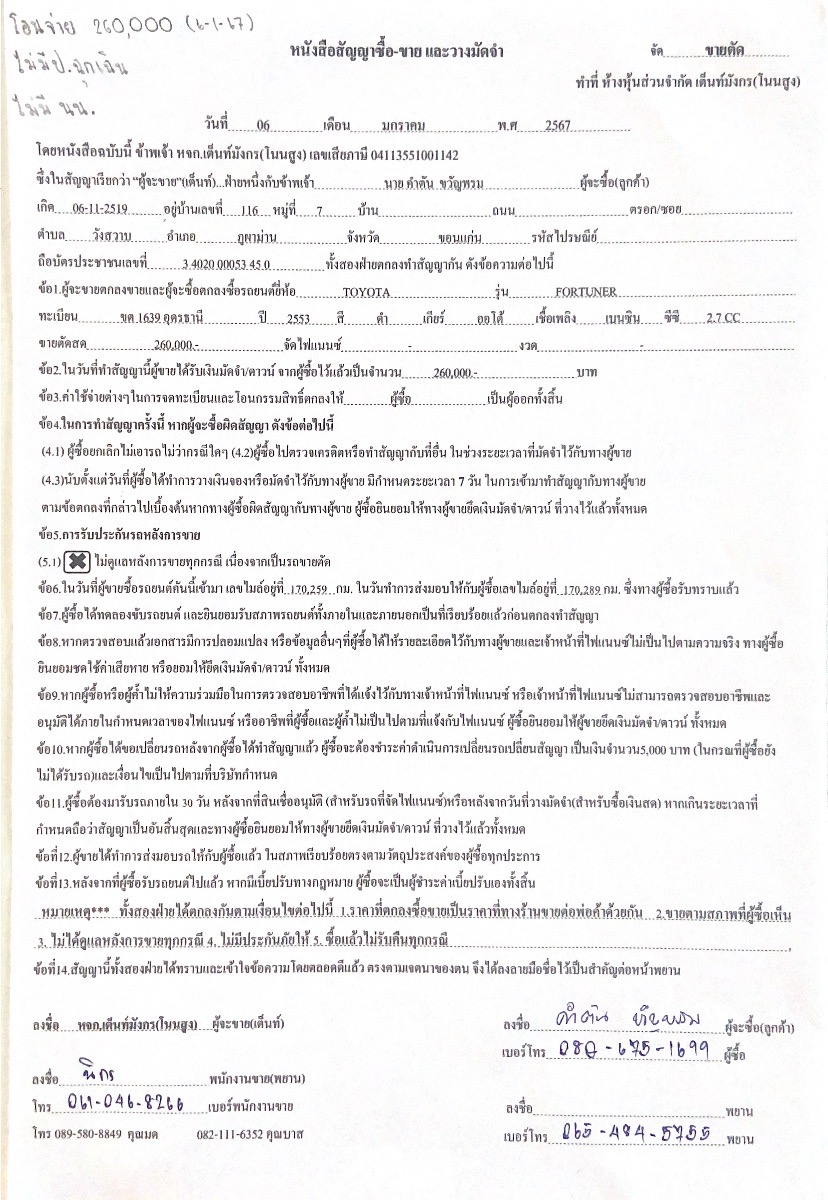 โอนจ่าย 260,000 (6-1-67)
ไม่มีป.ฉุกเฉิน
ไม่มี นน.
หนังสือสัญญาซื้อ-ขาย และวางมัดจำ
จัด ขายตัด
ทำที่ ห้างหุ้นส่วนจำกัด เต็นท์มังกร(โนนสูง)
วันที่ 06 เดือน มกราคม พ.ศ 2567
โดยหนังสือฉบับนี้ ข้าพเจ้า หจก.เต็นท์มังกร(โนนสูง) เลขเสียภาษี 04113551001142
ซึ่งในสัญญาเรียกว่า "ผู้จะขาย"(เต็นท์)...ฝ่ายหนึ่งกับข้าพเจ้า นาย คำตัน ขวัญพรม ผู้จะซื้อ(ลูกค้า)
เกิด 06-11-2519 อยู่บ้านเลขที่ 116 หมู่ที่ 7 บ้าน ถนน ตรอก/ซอย
ตำบล วังสวาบ อำเภอ ภูผาม่าน จังหวัด ขอนแก่น รหัสไปรษณีย์
ถือบัตรประชาชนเลขที่ 3 4020 00053 45 0 ทั้งสองฝ่ายตกลงทำสัญญากัน ดังข้อความต่อไปนี้
ข้อ1.ผู้จะขายตกลงขายและผู้จะซื้อตกลงซื้อรถยนต์ยี่ห้อ TOYOTA รุ่น FORTUNER
ทะเบียน ขค 1639 อุดรธานี ปี 2553 สี ดำ เกียร์ ออโต้ เชื้อเพลิง เบนซิน ซีซี 2.7 CC
ขายตัดสด 260,000.- จัดไฟแนนซ์ - งวด -
ข้อ2.ในวันที่ทำสัญญานี้ผู้ขายได้รับเงินมัดจำ/ดาวน์ จากผู้ซื้อไว้แล้วเป็นจำนวน 260,000.- บาท
ข้อ3.ค่าใช้จ่ายต่างๆในการจดทะเบียนและโอนกรรมสิทธิ์ตกลงให้ ผู้ซื้อ เป็นผู้ออกทั้งสิ้น
ข้อ4.ในการทำสัญญาครั้งนี้ หากผู้จะซื้อผิดสัญญา ดังข้อต่อไปนี้
(4.1) ผู้ซื้อยกเลิกไม่เอารถไม่ว่ากรณีใดๆ (4.2)ผู้ซื้อไปตรวจเครดิตหรือทำสัญญากับที่อื่น ในช่วงระยะเวลาที่มัดจำไว้กับทางผู้ขาย
(4.3)นับตั้งแต่วันที่ผู้ซื้อได้ทำการวางเงินจองหรือมัดจำไว้กับทางผู้ขาย มีกำหนดระยะเวลา 7 วัน ในการเข้ามาทำสัญญากับทางผู้ขาย
ตามข้อตกลงที่กล่าวไปเบื้องต้นหากทางผู้ซื้อผิดสัญญากับทางผู้ขาย ผู้ซื้อยินยอมให้ทางผู้ขายยึดเงินมัดจำ/ดาวน์ ที่วางไว้แล้วทั้งหมด
ข้อ5.การรับประกันรถหลังการขาย
(5.1) ✖ ไม่ดูแลหลังการขายทุกกรณี เนื่องจากเป็นรถขายตัด
ข้อ6.ในวันที่ผู้ขายซื้อรถยนต์คันนี้เข้ามา เลขไมล์อยู่ที่ 170,259 กม. ในวันทำการส่งมอบให้กับผู้ซื้อเลขไมล์อยู่ที่ 170,289 กม. ซึ่งทางผู้ซื้อรับทราบแล้ว
ข้อ7.ผู้ซื้อได้ทดลองขับรถยนต์ และยินยอมรับสภาพรถยนต์ทั้งภายในและภายนอกเป็นที่เรียบร้อยแล้วก่อนตกลงทำสัญญา
ข้อ8.หากตรวจสอบแล้วเอกสารมีการปลอมแปลง หรือข้อมูลอื่นๆที่ผู้ซื้อได้ให้รายละเอียดไว้กับทางผู้ขายและเจ้าหน้าที่ไฟแนนซ์ไม่เป็นไปตามความจริง ทางผู้ซื้อ
ยินยอมชดใช้ค่าเสียหาย หรือยอมให้ยึดเงินมัดจำ/ดาวน์ ทั้งหมด
ข้อ9.หากผู้ซื้อหรือผู้ค้ำไม่ให้ความร่วมมือในการตรวจสอบอาชีพที่ได้แจ้งไว้กับทางเจ้าหน้าที่ไฟแนนซ์ หรือเจ้าหน้าที่ไฟแนนซ์ไม่สามารถตรวจสอบอาชีพและ
อนุมัติได้ภายในกำหนดเวลาของไฟแนนซ์ หรืออาชีพที่ผู้ซื้อและผู้ค้ำไม่เป็นไปตามที่แจ้งกับไฟแนนซ์ ผู้ซื้อยินยอมให้ผู้ขายยึดเงินมัดจำ/ดาวน์ ทั้งหมด
ข้อ10.หากผู้ซื้อได้ขอเปลี่ยนรถหลังจากผู้ซื้อได้ทำสัญญาแล้ว ผู้ซื้อจะต้องชำระค่าดำเนินการเปลี่ยนรถเปลี่ยนสัญญา เป็นเงินจำนวน5,000 บาท (ในกรณีที่ผู้ซื้อยัง
ไม่ได้รับรถ)และเงื่อนไขเป็นไปตามที่บริษัทกำหนด
ข้อ11.ผู้ซื้อต้องมารับรถภายใน 30 วัน หลังจากที่สินเชื่ออนุมัติ (สำหรับรถที่จัดไฟแนนซ์)หรือหลังจากวันที่วางมัดจำ(สำหรับซื้อเงินสด) หากเกินระยะเวลาที่
กำหนดถือว่าสัญญาเป็นอันสิ้นสุดและทางผู้ซื้อยินยอมให้ทางผู้ขายยึดเงินมัดจำ/ดาวน์ ที่วางไว้แล้วทั้งหมด
ข้อที่12.ผู้ขายได้ทำการส่งมอบรถให้กับผู้ซื้อแล้ว ในสภาพเรียบร้อยตรงตามวัตถุประสงค์ของผู้ซื้อทุกประการ
ข้อที่13.หลังจากที่ผู้ซื้อรับรถยนต์ไปแล้ว หากมีเบี้ยปรับทางกฎหมาย ผู้ซื้อจะเป็นผู้ชำระค่าเบี้ยปรับเองทั้งสิ้น
หมายเหตุ*** ทั้งสองฝ่ายได้ตกลงกันตามเงื่อนไขต่อไปนี้ 1.ราคาที่ตกลงซื้อขายเป็นราคาที่ทางร้านขายต่อพ่อค้าด้วยกัน 2.ขายตามสภาพที่ผู้ซื้อเห็น
3. ไม่ได้ดูแลหลังการขายทุกกรณี 4. ไม่มีประกันภัยให้ 5. ซื้อแล้วไม่รับคืนทุกกรณี
ข้อที่14.สัญญานี้ทั้งสองฝ่ายได้ทราบและเข้าใจข้อความโดยตลอดดีแล้ว ตรงตามเจตนาของตน จึงได้ลงลายมือชื่อไว้เป็นสำคัญต่อหน้าพยาน
ลงชื่อ หจก.เต็นท์มังกร(โนนสูง) ผู้จะขาย(เต็นท์)
ลงชื่อ คำตัน ขวัญพรม ผู้จะซื้อ(ลูกค้า)
เบอร์โทร 080-675-1699 ผู้ซื้อ
ลงชื่อ นิกร พนักงานขาย(พยาน)
โทร 061-046-8266 เบอร์พนักงานขาย
ลงชื่อ พยาน
โทร 089-580-8849 คุณมด 082-111-6352 คุณบาส
เบอร์โทร 065-484-5755 พยาน